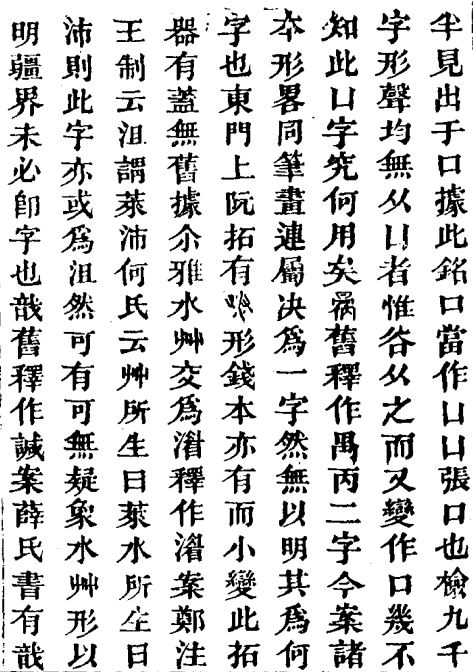 半見出于口據此銘口當作凵凵張口也檢九千
字形聲均無从凵者惟谷从之而又變作口幾不
知此凵字究何用矣舊釋作禺丙二字今案諸
本形畧同筆畫連屬决爲一字然無以明其爲何
字也東門上阮拓有形錢本亦有而小變此拓
器有蓋無舊據尒雅水艸交爲湄釋作湄案鄭注
王制云沮謂萊沛何氏云艸所生曰萊水所生曰
沛則此字亦或爲沮然可有可無疑象水艸形以
明疆界未必卽字也戠舊釋作諴案薛氏書有戠